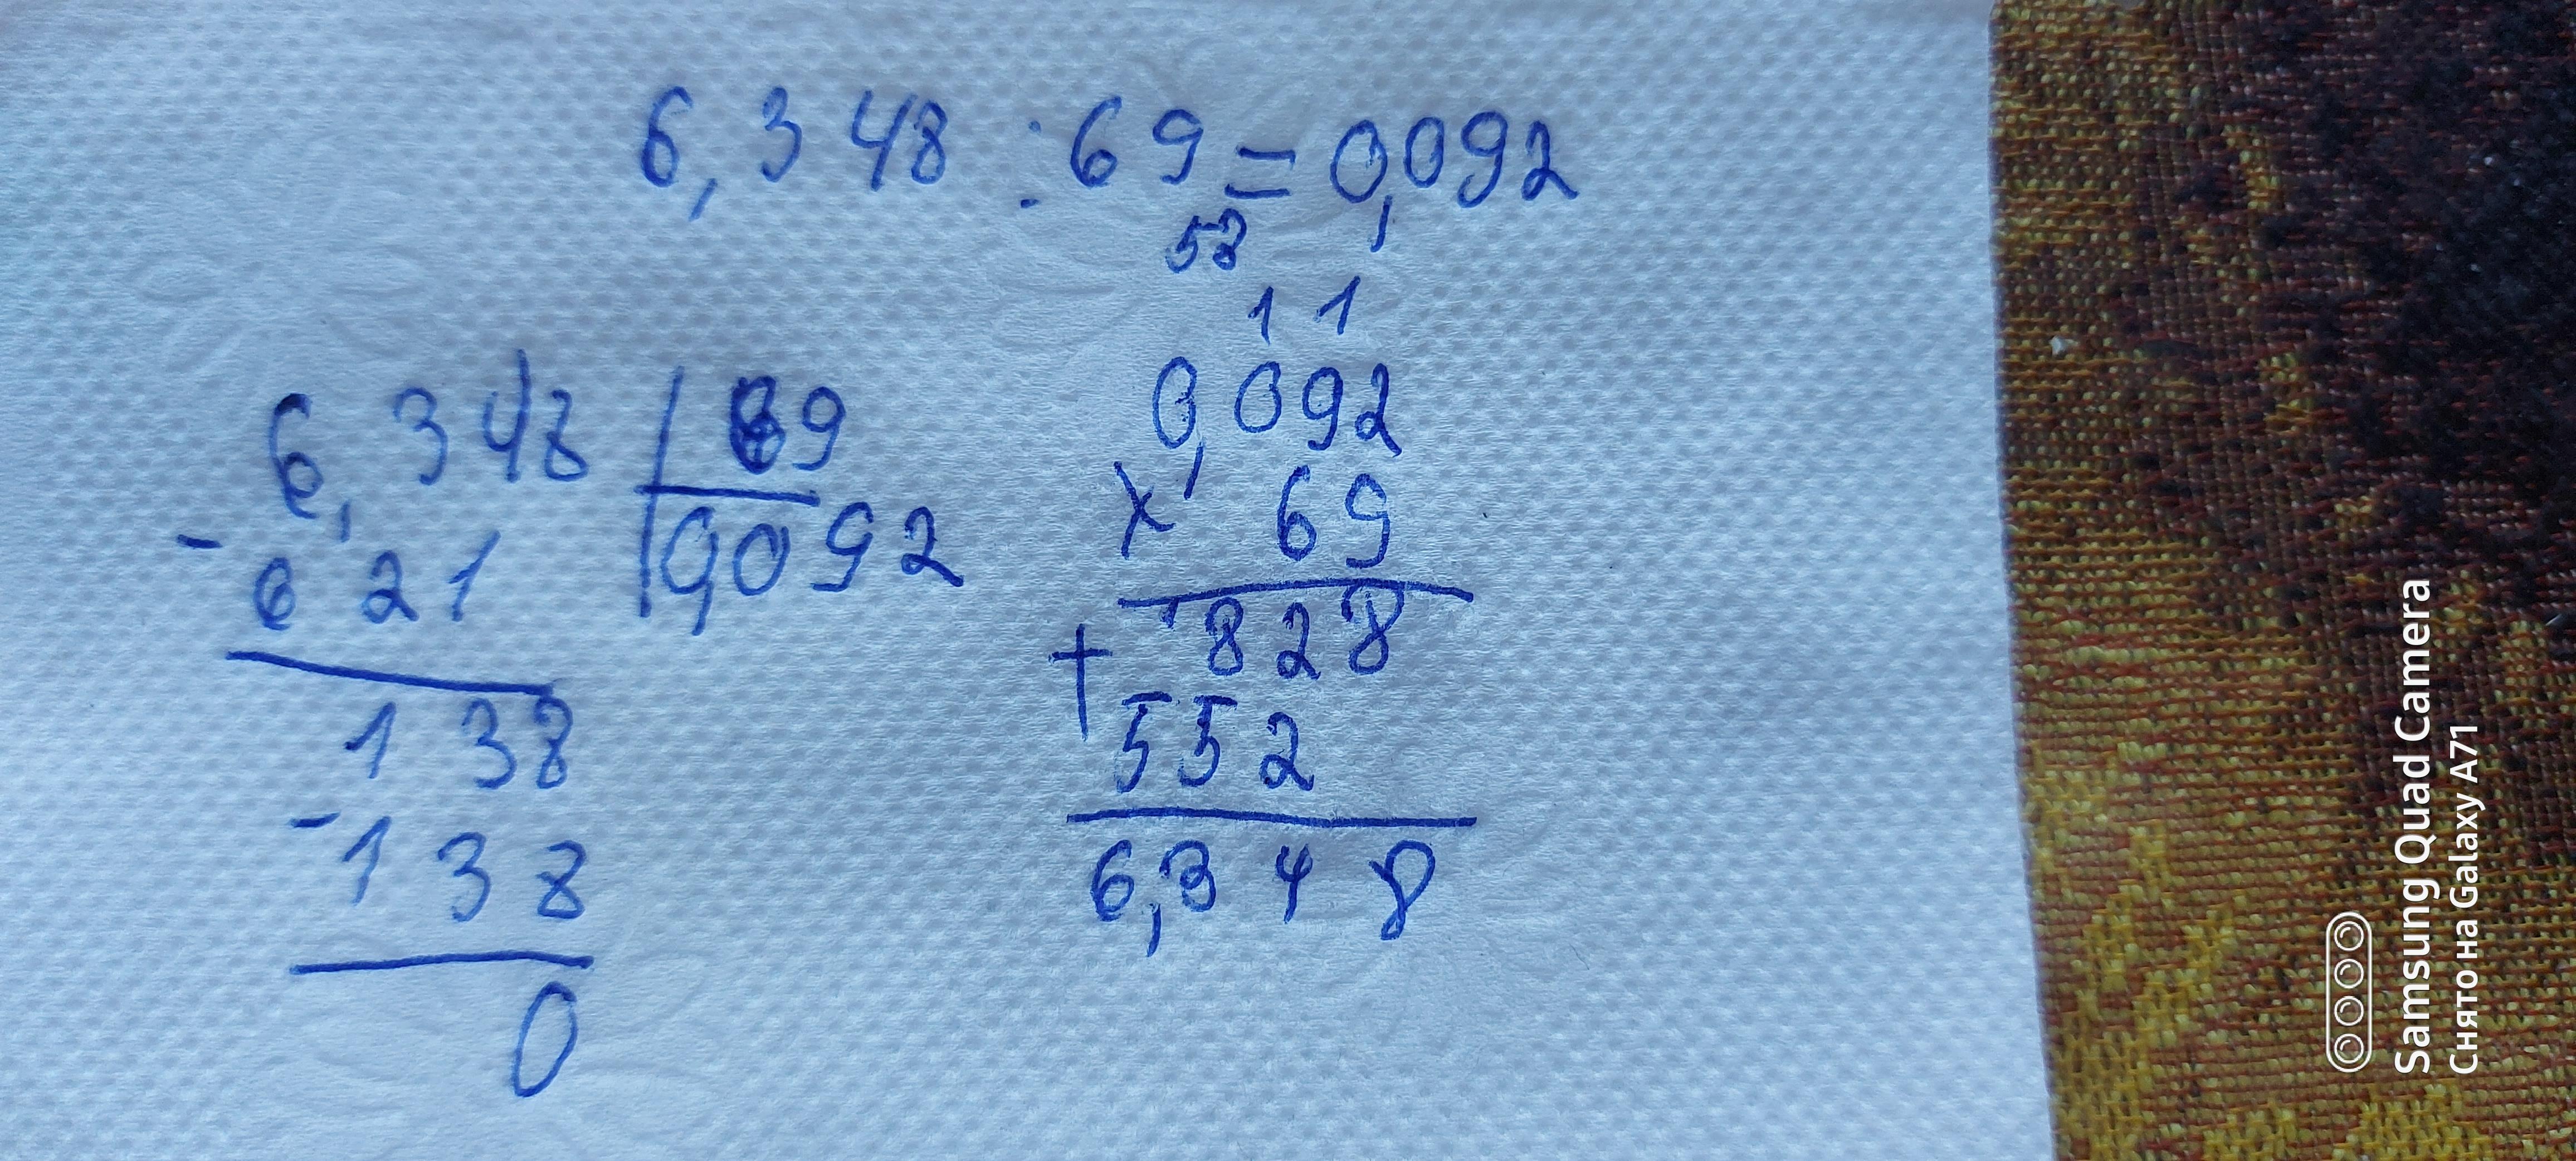 6,348 : 69 = 0,092
58
6,348 69
- 621 0,092
138
- 138
0
1 1
0,092
x 69
828
+ 552
6,348
Samsung Quad Camera
Снято на Galaxy A71